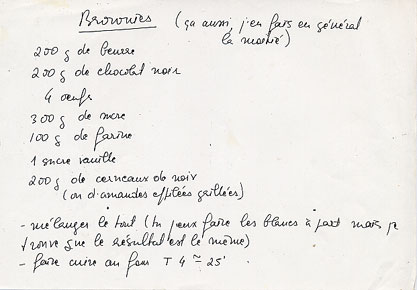 Brownies (ça aussi, j'en fais en général
la moitié)
200 g de beurre
200 g de chocolat noir
4 oeufs
300 g de sucre
100 g de farine
1 sucre vanille
200 g de cerneaux de noix
(ou d'amandes effilées grillées)
- mélanger le tout (tu peux faire les blancs à part mais je
trouve que le résultat est le même)
- faire cuire au four T 4 ≃ 25'